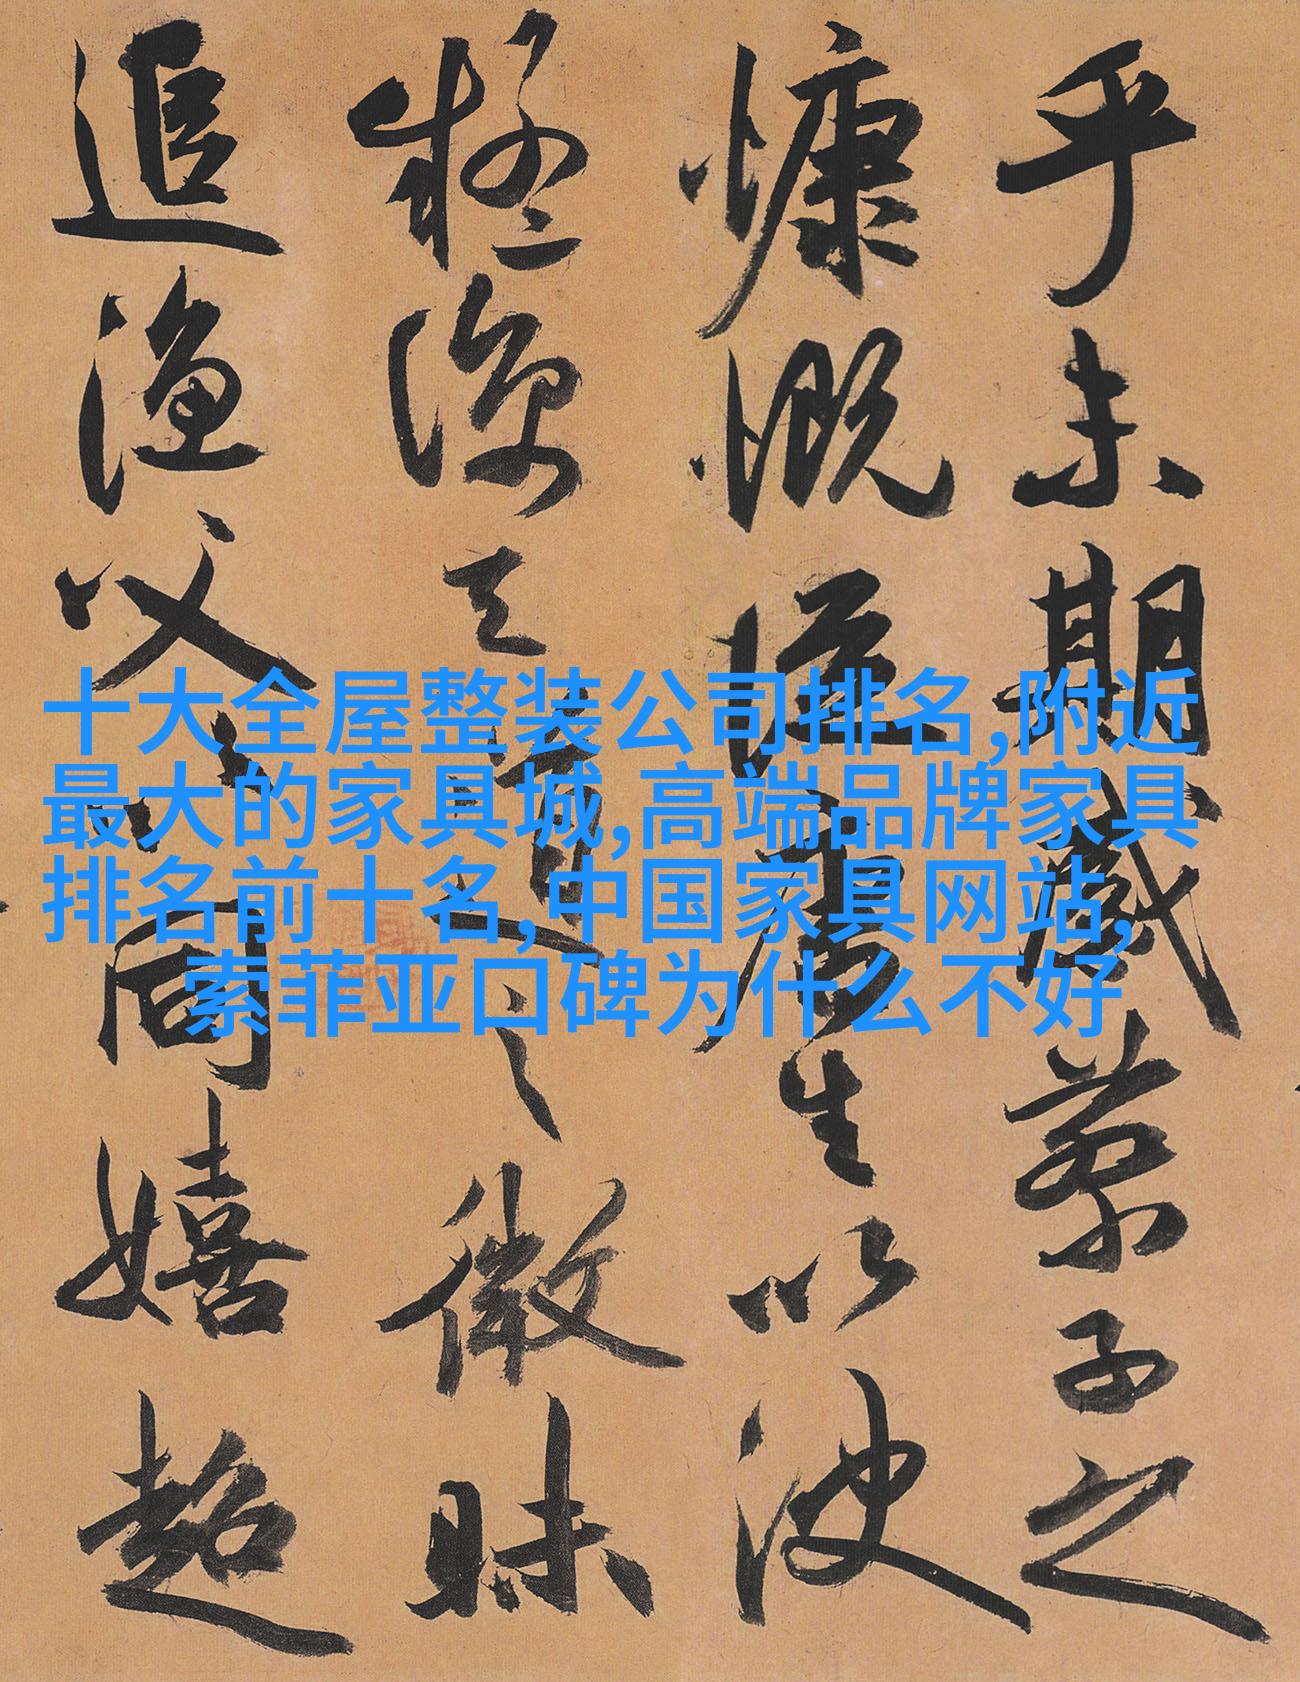 十大全屋整装公司排名,附近
最大的家具城,高端品牌家具
排名前十名,中国家具网站,
索菲亚口碑为什么不好
乎未期感蔡子之
慷慨從唐生以決
疑諒天道之微昧
追漁父以同嬉超